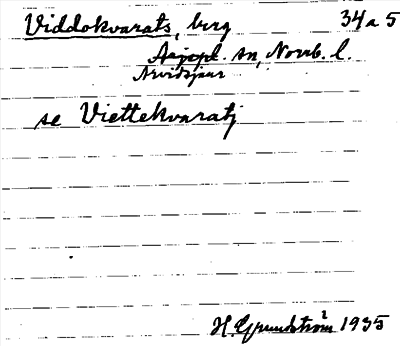 Viddokvarats, berg 34a 5
Arjepl. sn, Norrb. l.
Arvidsjaur
se Viettekvaratj
H. Grundström 1935